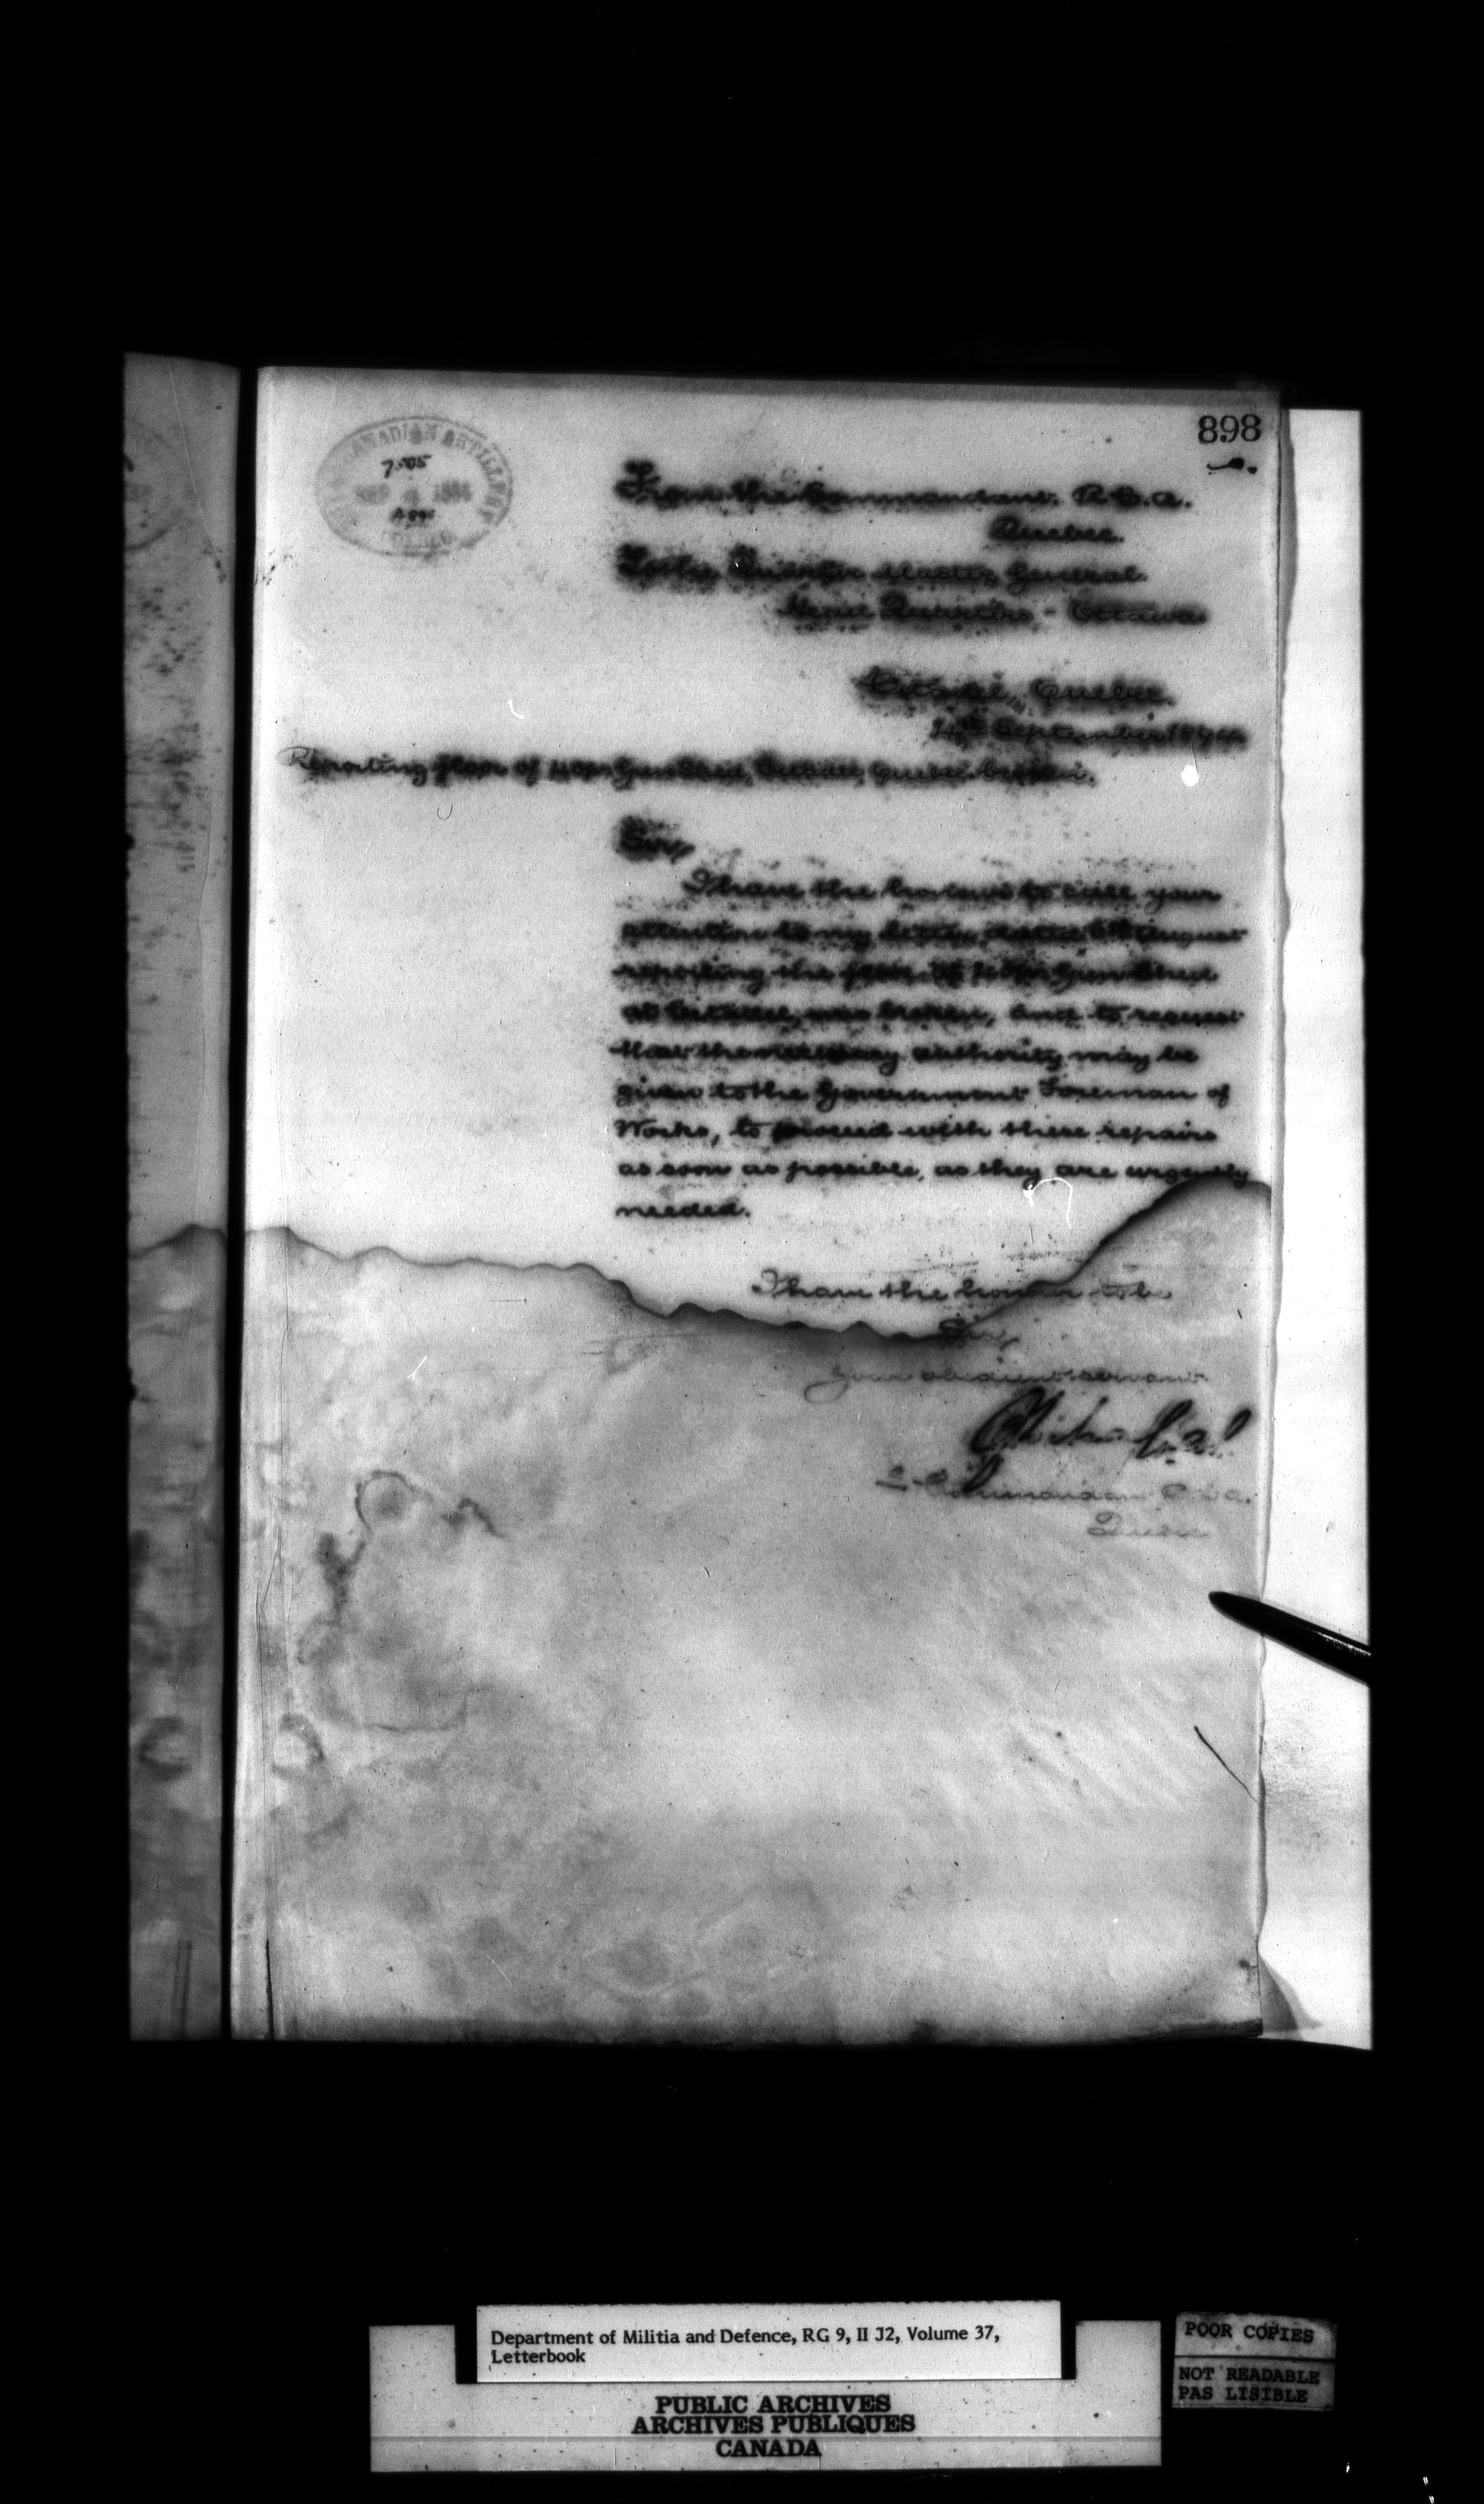 898
CANADIAN ARTILLERY
7505
SEP 4
From the Commandant. R.C.A.
Quebec.
To the Quarter Master General
Head Quarters - Ottawa
Citadel, Quebec
4th September 189
Reporting floor of Gun Shed, Citadel, Quebec broken.
Sir,
I have the honour to call your
attention to my letter dated August
reporting the floor of Gun Shed
at Citadel, was broken, and to request
that the necessary authority may be
given to the Government Foreman of
Works, to proceed with these repairs
as soon as possible, as they are urgently
needed.
I have the honour to be
Sir,
Your obedient servant
Commandant R.C.A.
Quebec
Department of Militia and Defence, RG 9, II J2, Volume 37,
Letterbook
PUBLIC ARCHIVES
ARCHIVES PUBLIQUES
CANADA
POOR COPIES
NOT READABLE
PAS LISIBLE